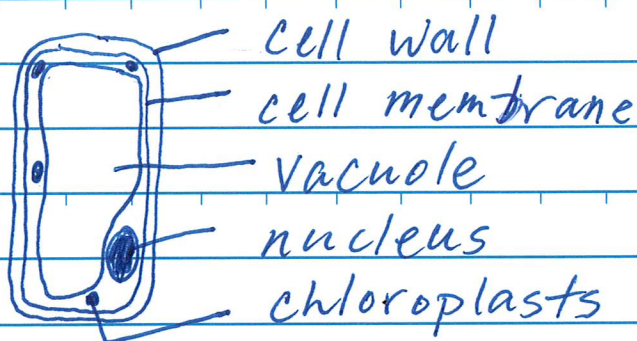 cell wall
cell membrane
vacuole
nucleus
chloroplasts